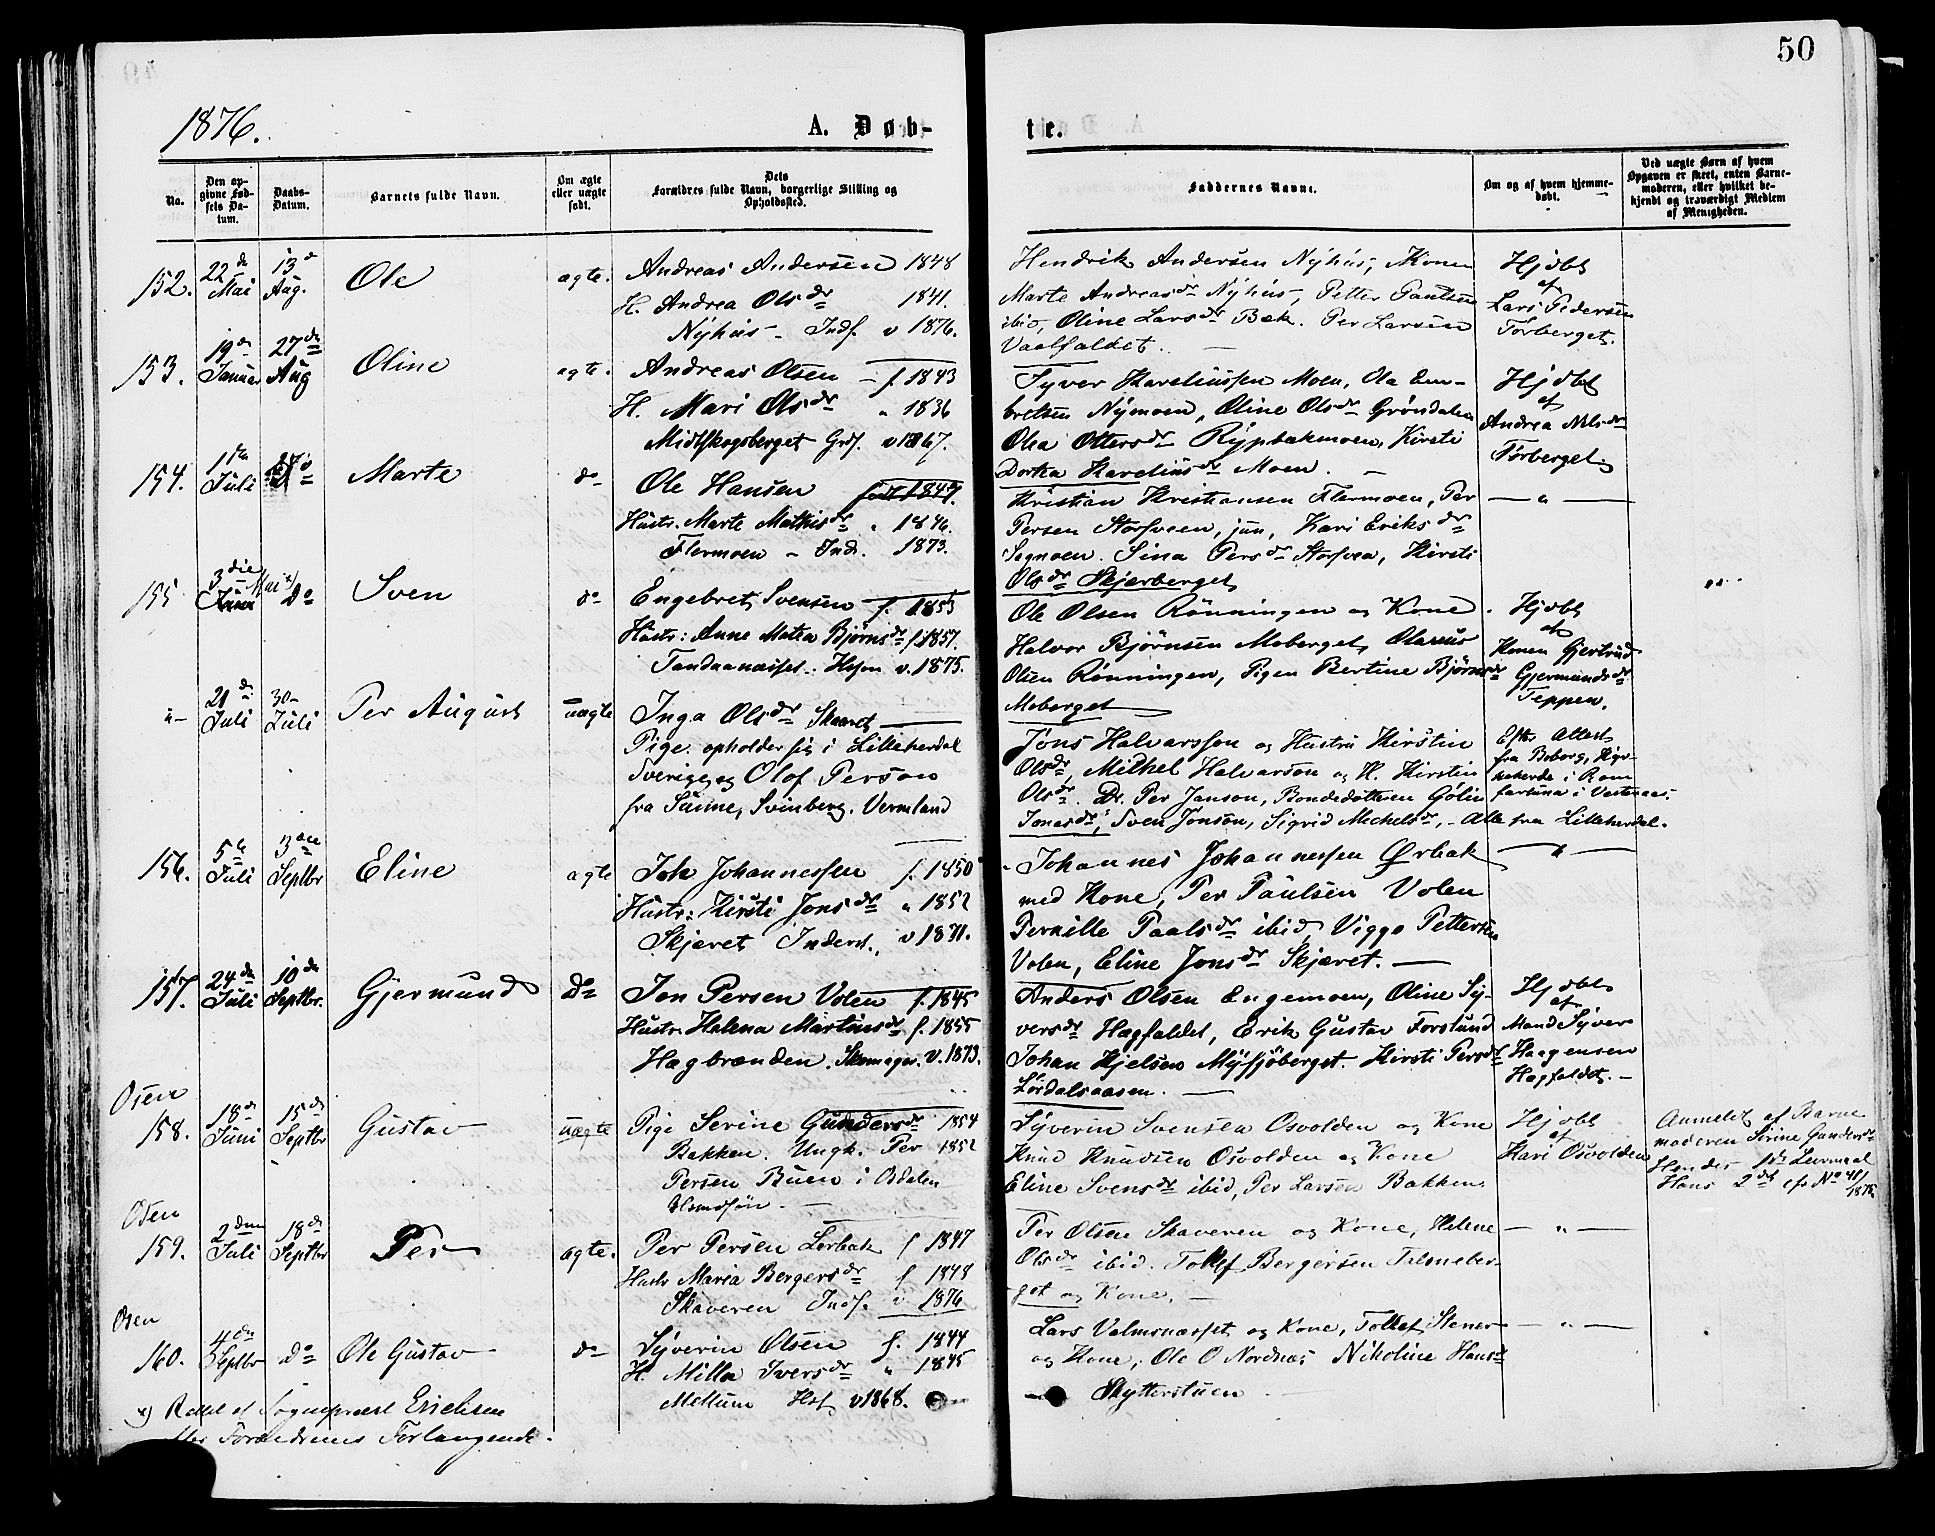 50
1876.
A. Døb-
te.
No.
Den op-
givne Fød-
sels Da-
tum.
Daabs-
Datum.
Barnets fulde Navn.
Om ægte
eller uægte
født.
Dets
Forældres fulde Navn, borgerlige Stilling og
Opholdssted.
Faddernes Navne.
Om og af hvem hjemme-
døbt.
Ved uægte Børn af hvem
Opgaven er skeet, enten Barne-
moderen, eller hvilket be-
kjendt og troværdigt Medlem
af Menigheden.
152.
22de
Mai
13de
Aug.
Ole
ægte.
Andreas Andersen 1848
H. Andrea Olsdr 1841.
Nyhus - Indf. v 1876.
Hendrik Andersen Nyhus, Kone
Marte Andreasdr Nyhus, Petter Paulsen
ibid, Oline Larsdr Bæk. Per Larsen
Vaalfaldet.
Hjdbt
af
Lars Pedersen
Tørberget.
153.
19de
Januar
27de
Aug
Oline
ægte.
Andreas Olsen f. 1843
H. Mari Olsdr " 1836
Midtskogsberget Grdf. v 1867.
Syver Kareliussen Moen, Ola Em-
bretsen Nymoen, Oline Olsdr Grøndalen
Olea Ottersdr Rypbakmoen, Kirsti
Dortea Kareliusdr Moen.
Hjdbt
af
Andrea Nilsdr
Tørberget.
154.
1ste
Juli
do
Marte
do
Ole Hansen født 1847.
Hustr. Marte Mathisdr " 1846.
Flermoen - Inds. 1873.
Kristian Kristiansen Flermoen, Per
Persen Storsveen, jun, Kari Eriksdr
Sognoen. Sina Persdr Storsven, Kirsti
Olsdr Skjærberget
— " —
155
3die
Juni
Mai x)
do
Sven
do
Engebret Svensen f. 1853
Hustr: Anne Matea Bjørnsdr f. 1857.
Tandaanæsset. Husm v. 1875.
Ole Olsen Rønningen og Kone.
Halvor Bjørnsen Moberget, Olaus
Olsen Rønningen, Pigen Bertine Bjørnsdr
Moberget
Hjdbt
af
Konen Gjertrud
Gjermundsdr
Teppen.
u-
21de
Juli
30-
Juli
Per August
uægte
Inga Olsdr Skaaret
Pige opholder sig i Lilleherdal
Sverige, og Olof Person
fra Sunne, Svinberg, Vermland
Jons Halvarsson og Hustru Kirstin
Olsdr, Mikkel Halvarson og H. Kirstin
Olsdr. Dr. Per Janson, Bondedotteren Gølin
Jonasdr, Sven Jonson, Sigrid Michelsdr, - Alle fra Lilleherdal.
Efter Attest
156.
5te
Juli
3die
Septbr
Eline
ægte
Joh Johannessen f. 1850
Hustr: Kirsti Jonsdr " 1852
Skjæret Inderst. v 1871.
Johannes Johannessen Ørbæk
med Kone, Per Paulsen Volen
Pernille Paalsdr ibid, Viggo Pettersen
Volen, Eline Jonsdr Skjæret.
— " —
157.
24de
Juli
10de
Septbr.
Gjermund
Do
Jon Persen Volen f. 1845
Hustr. Helena Martinsdr f. 1855
Hagbrænden. Skomager. v. 1873.
Anders Olsen Engemoen, Oline Sy-
versdr Hagfaldet, Erik Gustav Forslund
Johan Kjelsen Mysjøberget. Kirsti Persdr
Lørdalsaasen.
Hjdbt
af
Mand Syver
Haagensen
Hagfaldet. -
Osen
158.
18de
Juni
15de
Septbr
Gustav
uægte
Pige Serine Gundersdr 1854
Bakken. Ungk. Per 1852
Persen Buen i Osdalen
Syverin Svensen Osvolden og Kone
Knud Knudsen Osvolden og Kone
Eline Svensdr ibid, Per Larsen Bakken
Hjdbt
af
Kari Osvolden
Anmeldt af Barne
moderen Serine Gundersdr
Hendes 1ste Leiermaal
Hans 2det cfr No 41/1875
Osen
159.
2den
Juli
18de
Septbr
Per
ægte.
Per Persen Lerbæk f 1847
Hustr Maria Bergersdr f 1848
Skaveren Indf. v 1876
Per Olsen Skaveren og Kone, Helene
Olsdr ibid. Tollef Bergersen
get og Kone,
— " —
Osen
160.
4de
Septbr
do
Ole Gustav
do
Syverin Olsen f. 1844
H. Milla Iversdr " 1845
Mellum Hsf v 1868.
Lars Valmsnæsset og Kone, Tollef Stener
og Kone, Ole O Nordnæs Nikoline Hansdr
Skytterstuen
— " —
x) Rettet af Sogneprest Erichsen
efter Forældrenes Forlangende.